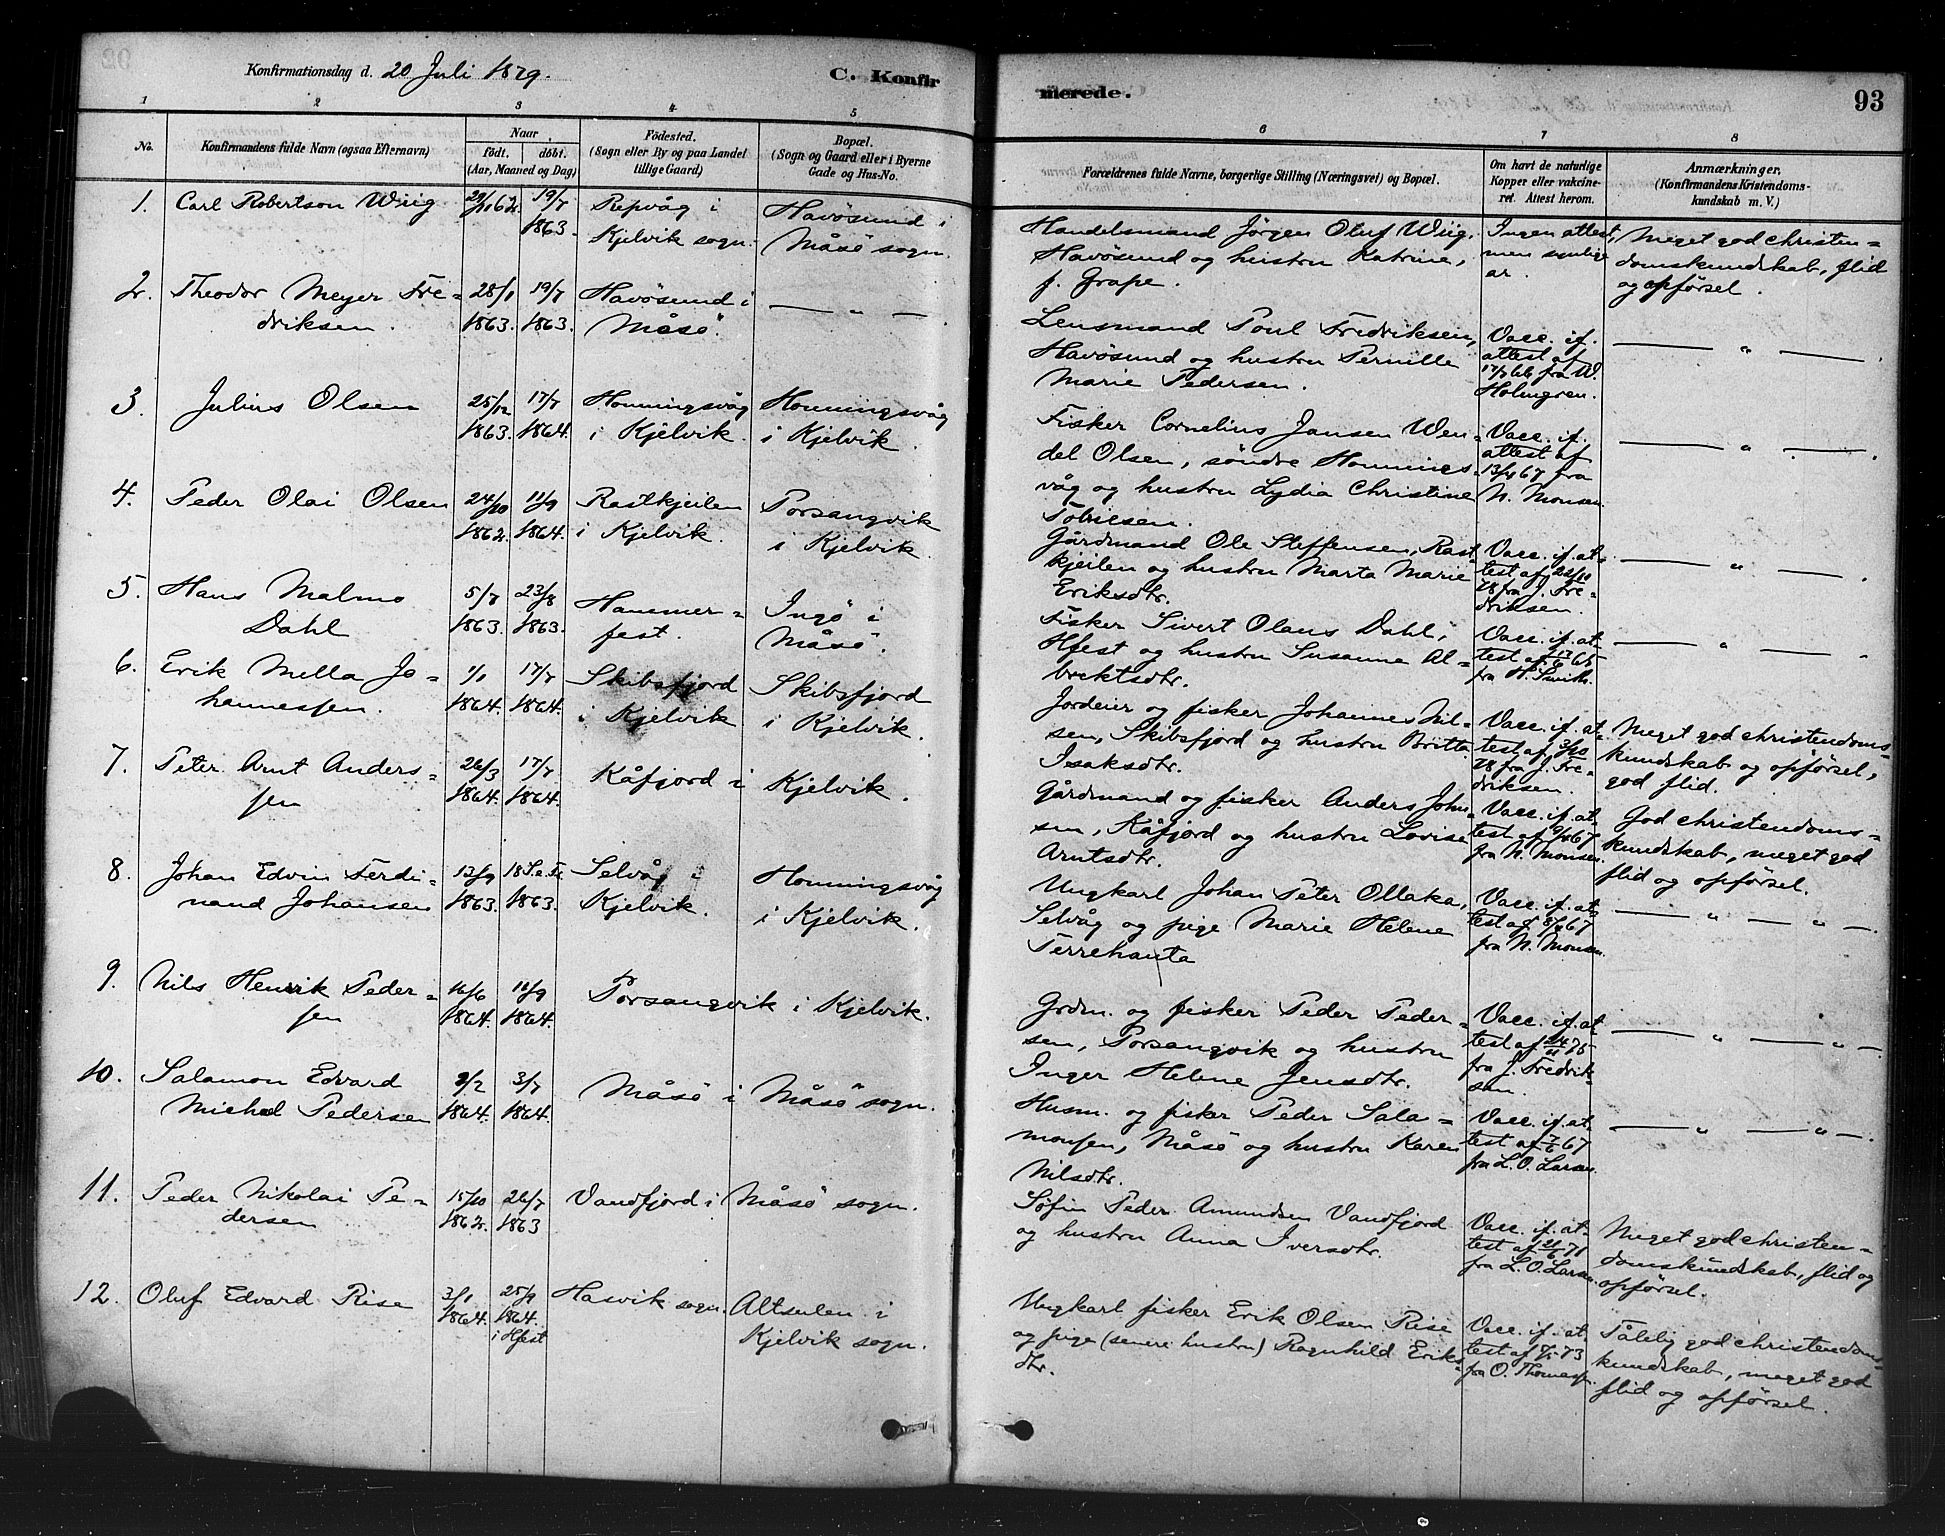 Konfirmationsdag d. 20 Juli 1879.
C. Konfir
merede.
93
1 2 3 4 5 6 7 8
No.
Konfirmandens fulde Navn (ogsaa Efternavn)
Naar
födt. döbt.
(Aar, Maaned og Dag)
Födested.
(Sogn eller By og paa Landet
tillige Gaard)
Bopæl.
(Sogn og Gaard eller i Byerne
Gade og Hus-No.
Forældrenes fulde Navne, borgerlige Stilling (Næringsvei) og Bopæl.
Om havt de naturlige
Kopper eller vakcine-
ret. Attest herom.
Anmærkninger.
(Konfirmandens Kristendoms-
kundskab m. V.)
1. Carl Robertson Wiig 62. 19/7 Repvåg i Havösund i
1863. Kjelvik sogn. Måsö sogn.
Handelsmand Jörgen Oluf Wiig,
Havösund og hustru Katrine,
f. Grape.
Ingen attest,
men synlige
ar.
Meget god christen=
domskundskab, flid
og opförsel.
2. Theodor Meyer Fre= 28/1 19/7 Havösund i — " —
driksen. 1863. 1863. Måsö.
Lensmand Poul Fredriksen,
Havösund og hustru Pernille
Marie Pedersen.
Vacc. if.
attest af
17/7 66 fra W.
Holmgren.
— " —.
3. Julius Olsen 25/12 17/7 Honningsvåg Honningsvåg
1863. 1864. i Kjelvik. i Kjelvik.
Fisker Cornelius Jansen Wen=
del Olsen, söndre Honnings=
våg og hustru Lydia Christine
Tobiesen.
Vacc. if.
attest af
67 fra
N. Monsen
— " —.
4. Peder Olai Olsen 24/10 11/9 Rastkjeilen Porsangvik
1862. 1864. i Kjelvik. i Kjelvik.
Gårdmand Ole Steffensen, Rast=
kjeilen og hustru Marta Marie
Eriksdtr.
Vacc. if. at=
test af 22/10
78 fra J. Fre=
driksen.
— " —.
5. Hans Malmo 5/7 23/8 Hammer= Ingö i
Dahl 1863. 1863. fest. Måsö.
Fisker Sivert Olaus Dahl,
Hfest og hustru Susanna Al=
brektsdtr.
Vacc. if. at=
test af 65
fra
— " —.
6. Erik Mella Jo= 1/1 17/7 Skibsfjord Skibsfjord
hannessen. 1864. 1864. i Kjelvik i Kjelvik.
Jordeier og fisker Johannes Nil=
sen, Skibsfjord og hustru Britta
Isaksdtr.
Vacc. if. at=
test af 3/10
78 fra J. Fre=
driksen.
Meget god christendoms=
kundskab og opförsel,
god flid.
7. Peter Arnt Anders= 26/3 17/7 Kåfjord i Kjelvik.
sen 1864. 1864.
Gårdmand og fisker Anders John=
sen, Kåfjord og hustru Lovise
Arntsdtr.
Vacc. if. at=
test af 67
fra N. Monsen.
God christendoms=
kundskab, meget god
flid og opförsel.
8. Johan Edvin Ferdi= 13/9 18 S.e.Tr. Selvåg i Honningsvåg
nand Johansen 1863. 1863. Kjelvik. i Kjelvik.
Ungkarl Johan Peter Ollaka,
Selvåg og pige Marie Helene
Terrehauta
Vacc. if. at=
test af 67
fra N. Monsen
— " — " —.
9. Nils Henrik Peder= 16/6 11/9 Porsangvik i Kjelvik.
sen 1864. 1864.
Grdm. og fisker Peder Peder=
sen, Porsangvik og hustru
Inger Helene Jensdtr.
Vacc. if. at
test af 75
fra J. Fredrik=
sen.
— " — " —.
10. Salamon Edvard 9/2 3/7 Måsö i Måsö sogn.
Michel Pedersen 1864. 1864.
Husm. og fisker Peder Sala=
monsen, Måsö og hustru Karen
Nilsdtr.
Vacc. if. at=
test af 7/6 67
fra L. O. Larsen.
— " — " —.
11. Peder Nikolai Pe= 15/10 26/7 Vandfjord i Måsö sogn.
dersen 1862. 1863
Söfin Peder Amundsen Vandfjord
og hustru Anna Iversdtr.
Vacc. if. at=
test af 71
fra L. O. Larsen.
Meget god christen=
domskundskab, flid og
opförsel.
12. Oluf Edvard Rise 3/1 25/9 Hasvik sogn. Altsulen i
1864. 1864. Kjelvik sogn.
i Hfest
Ungkarl fisker Erik Olsen Rise
og pige (senere hustru) Ragnhild Eriks=
dtr.
Vacc. if. at=
test af 73
fra O. Thomassen.
Tålelig god christendoms=
kundskab, meget god
flid og opförsel.